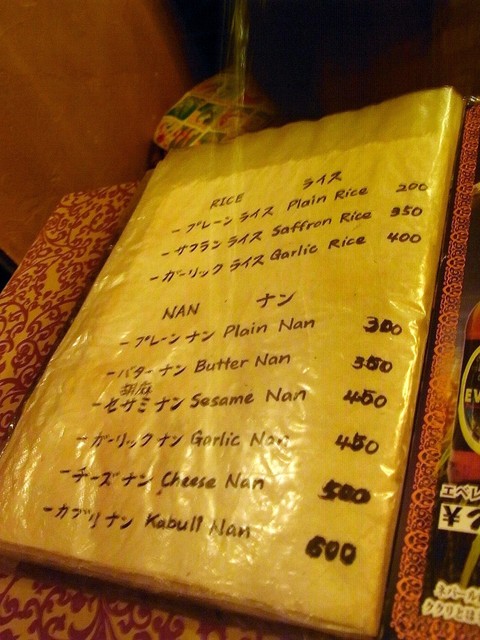 RICE ライス
－プレーンライス Plain Rice 200
－サフランライス Saffron Rice 350
－ガーリックライス Garlic Rice 400
NAN ナン
－プレーンナン Plain Nan 300
－バターナン Butter Nan 350
胡麻
－セサミナン Sesame Nan 450
－ガーリックナン Garlic Nan 450
－チーズナン Cheese Nan 500
－カブリナン Kabull Nan 600
EV
エベレ
¥
ネパール
ククリとは